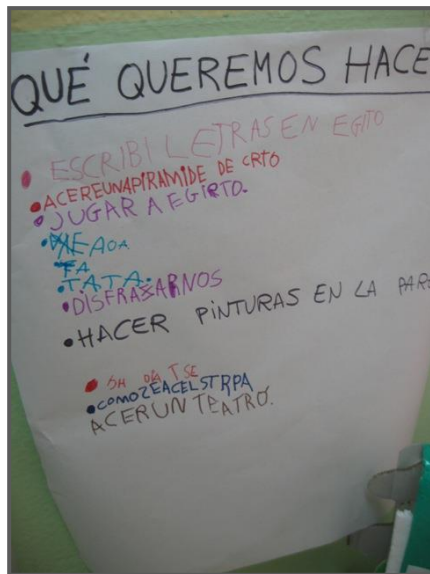 QUÉ QUEREMOS HACE
• ESCRIBI LETRAS EN EGITO
• ACEREUNAPIRAMIDE DE CRTO
• JUGAR A EGIRTO.
FA
• TATA.
• DISFRAZARNOS
• HACER PINTURAS EN LA PAR
• COMOZEACELSTRPA
ACERUNTEATRO.